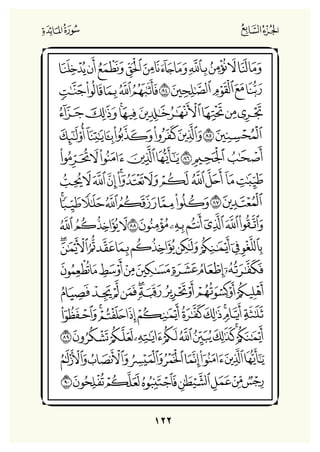 الجُزْءُ السَّابِعُ
سُورَةُ المَائِدَةِ
وَمَا لَنَا لَا نُؤْمِنُ بِٱللَّهِ وَمَا جَآءَنَا مِنَ ٱلْحَقِّ وَنَطْمَعُ أَن يُدْخِلَنَا
رَبُّنَا مَعَ ٱلْقَوْمِ ٱلصَّٰلِحِينَ ٨٤ فَأَثَٰبَهُمُ ٱللَّهُ بِمَا قَالُوا۟ جَنَّٰتٍ
تَجْرِى مِن تَحْتِهَا ٱلْأَنْهَٰرُ خَٰلِدِينَ فِيهَا ۚ وَذَٰلِكَ جَزَآءُ
ٱلْمُحْسِنِينَ ٨٥ وَٱلَّذِينَ كَفَرُوا۟ وَكَذَّبُوا۟ بِـَٔايَٰتِنَآ أُو۟لَٰٓئِكَ
أَصْحَٰبُ ٱلْجَحِيمِ ٨٦ يَٰٓأَيُّهَا ٱلَّذِينَ ءَامَنُوا۟ لَا تُحَرِّمُوا۟
طَيِّبَٰتِ مَآ أَحَلَّ ٱللَّهُ لَكُمْ وَلَا تَعْتَدُوٓا۟ ۚ إِنَّ ٱللَّهَ لَا يُحِبُّ
ٱلْمُعْتَدِينَ ٨٧ وَكُلُوا۟ مِمَّا رَزَقَكُمُ ٱللَّهُ حَلَٰلًا طَيِّبًا ۚ
وَٱتَّقُوا۟ ٱللَّهَ ٱلَّذِىٓ أَنتُم بِهِۦ مُؤْمِنُونَ ٨٨ لَا يُؤَاخِذُكُمُ ٱللَّهُ
بِٱللَّغْوِ فِىٓ أَيْمَٰنِكُمْ وَلَٰكِن يُؤَاخِذُكُم بِمَا عَقَّدتُّمُ ٱلْأَيْمَٰنَ ۖ
فَكَفَّٰرَتُهُۥٓ إِطْعَامُ عَشَرَةِ مَسَٰكِينَ مِنْ أَوْسَطِ مَا تُطْعِمُونَ
أَهْلِيكُمْ أَوْ كِسْوَتُهُمْ أَوْ تَحْرِيرُ رَقَبَةٍ ۖ فَمَن لَّمْ يَجِدْ فَصِيَامُ
ثَلَٰثَةِ أَيَّامٍ ۚ ذَٰلِكَ كَفَّٰرَةُ أَيْمَٰنِكُمْ إِذَا حَلَفْتُمْ ۚ وَٱحْفَظُوٓا۟
أَيْمَٰنَكُمْ ۚ كَذَٰلِكَ يُبَيِّنُ ٱللَّهُ لَكُمْ ءَايَٰتِهِۦ لَعَلَّكُمْ تَشْكُرُونَ ٨٩
يَٰٓأَيُّهَا ٱلَّذِينَ ءَامَنُوٓا۟ إِنَّمَا ٱلْخَمْرُ وَٱلْمَيْسِرُ وَٱلْأَنصَابُ وَٱلْأَزْلَٰمُ
رِجْسٌ مِّنْ عَمَلِ ٱلشَّيْطَٰنِ فَٱجْتَنِبُوهُ لَعَلَّكُمْ تُفْلِحُونَ ٩٠
١٢٢